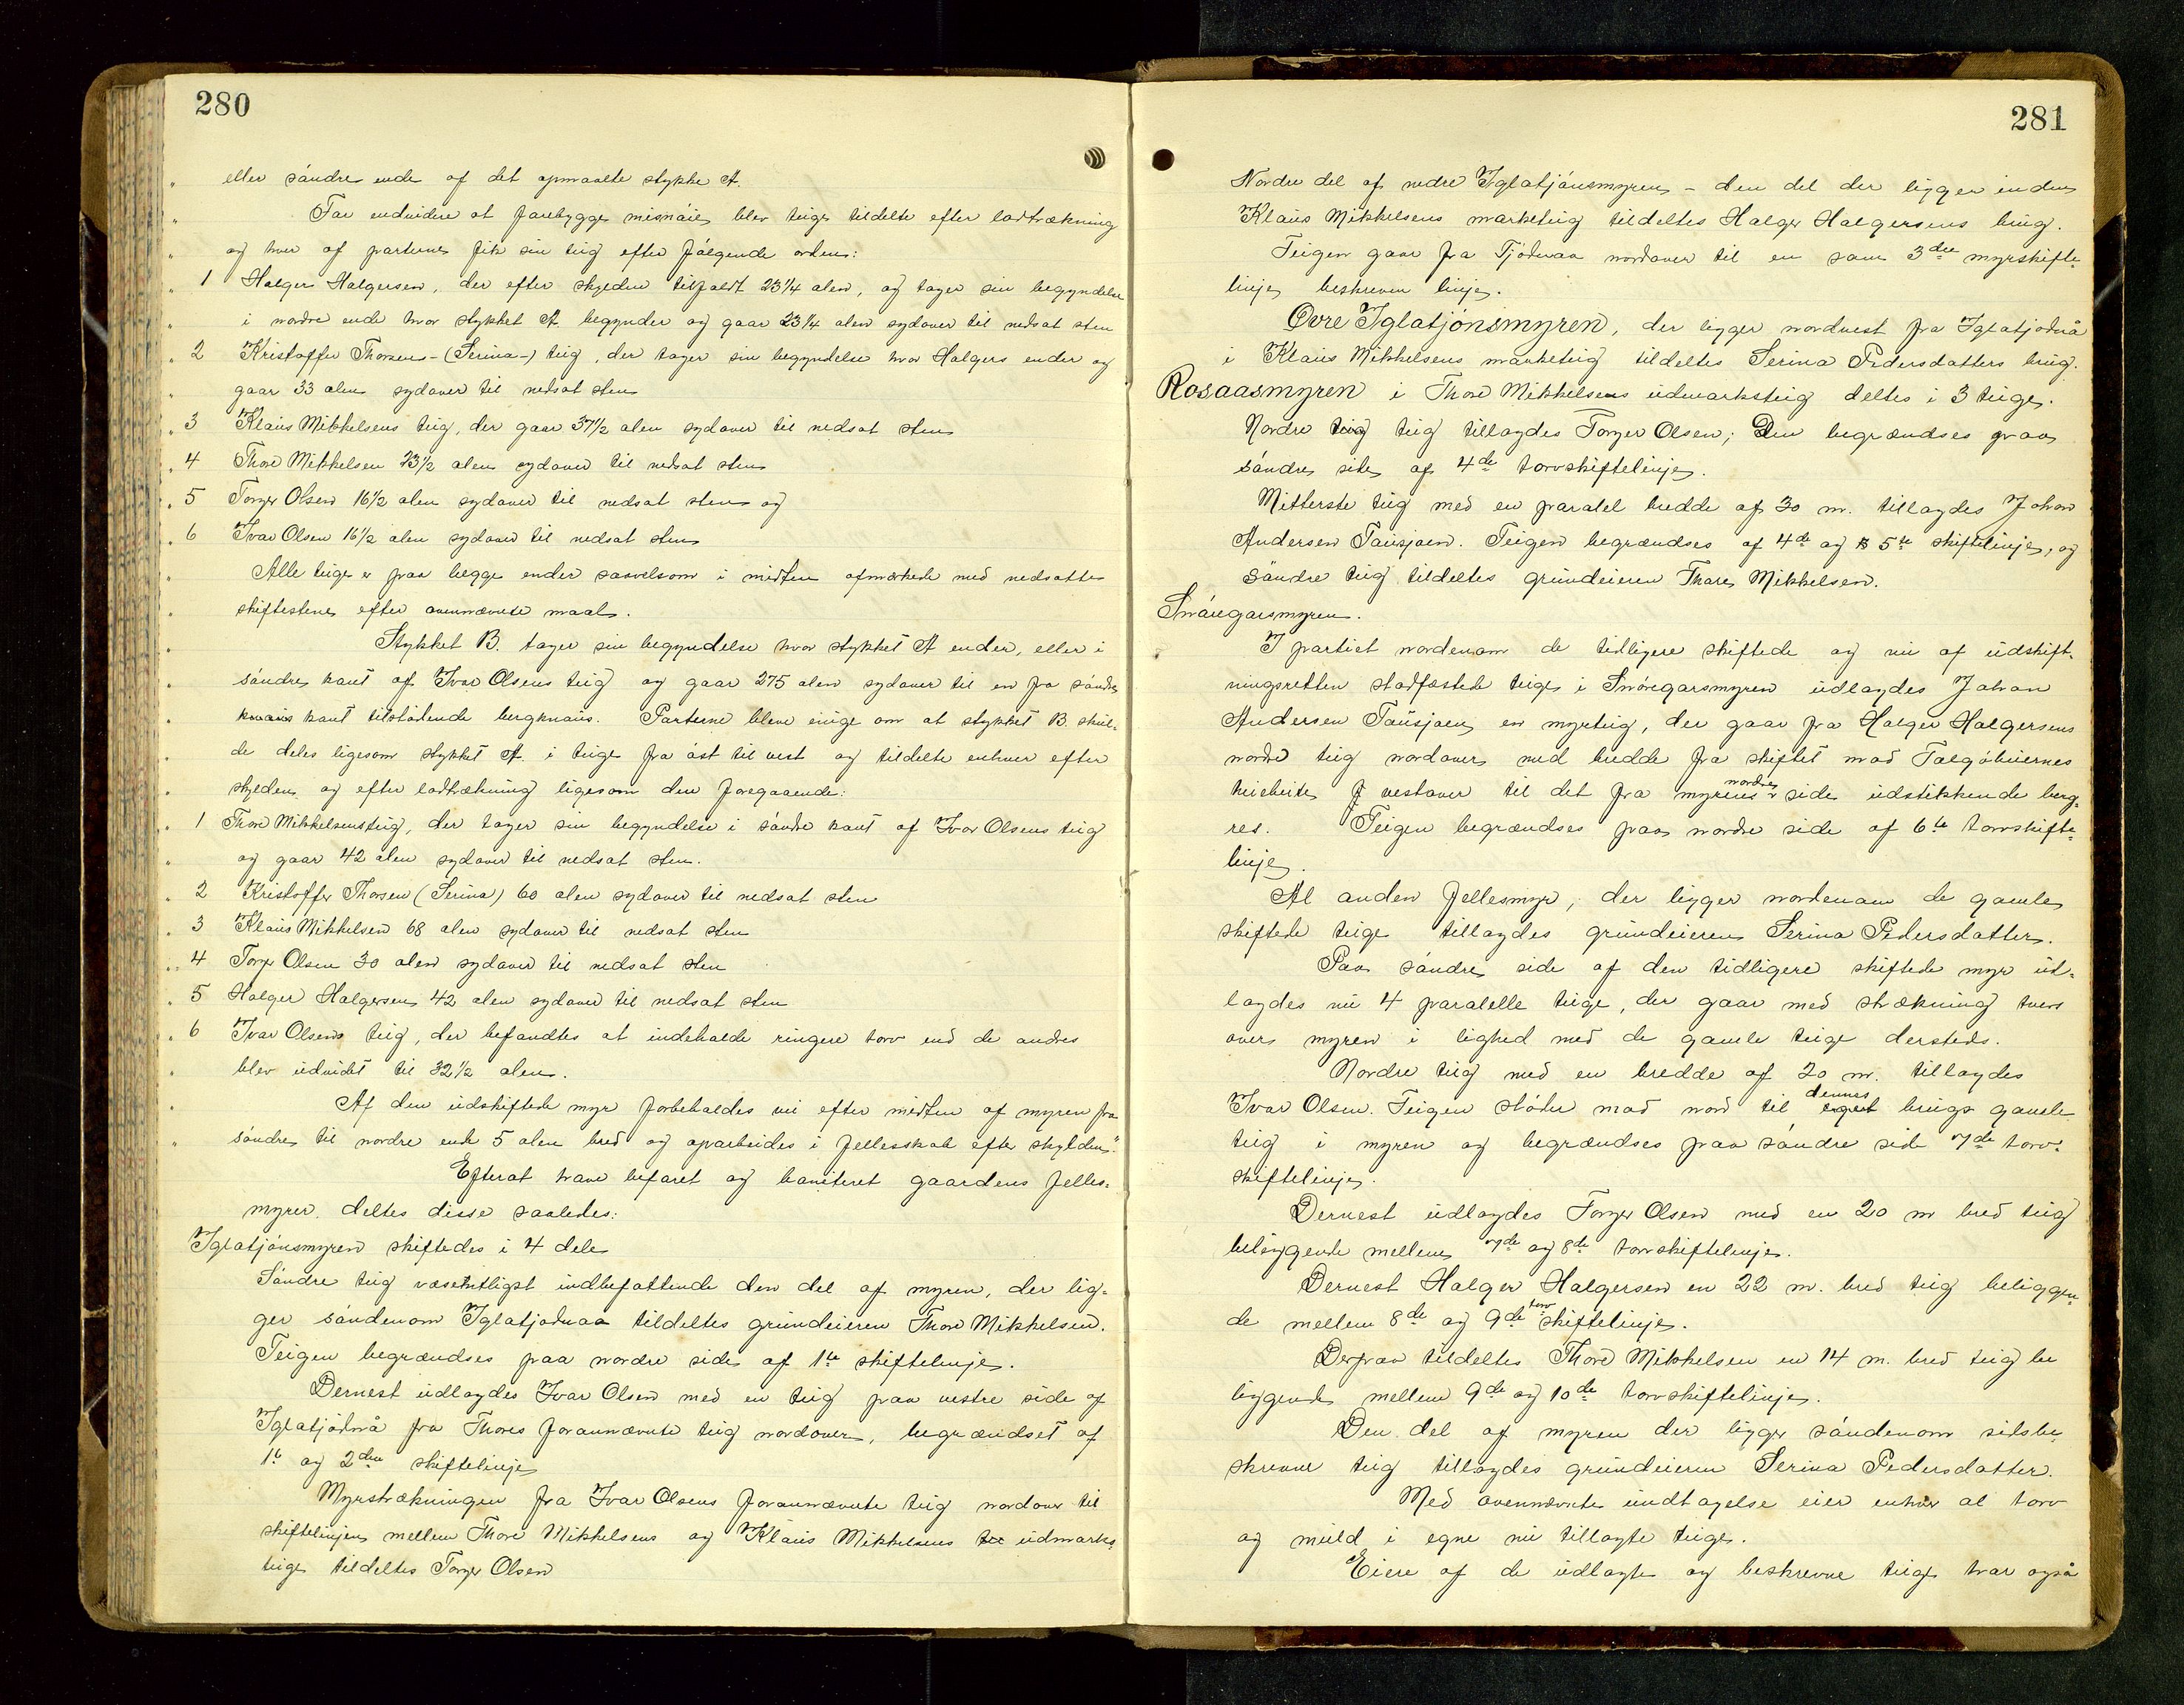 280
" eller söndre ende af det opmaalte stykke A.
" For endvidere at forebygge misnöie, blev teige tildelte efter lodtrækning
" og hver af parterne fik sin teig efter fölgende orden:
" 1 Holger Holgersen, der efter skylden tilfaldt 23 1/4 alen, og tager sin begyndelse
" i nordre ende hvor stykket A. begynder og gaar 23 1/4 alen sydover til nedsat sten
" 2 Kristoffer Thorsens - (Serina -) teig, der tager sin begyndelse hvor Holgers ender og
" gaar 33 alen sydover til nedsat sten
" 3 Klaus Mikkelsens teig, der gaar 37 1/2 alen sydover til nedsat sten
" 4 Thore Mikkelsen 23 1/2 alen sydover til nedsat sten
" 5 Torger Olsen 16 1/2 alen sydover til nedsat sten og
" 6 Ivar Olsen 16 1/2 alen sydover til nedsat sten
" Alle teige er paa begge ender saavelsom i midten afmærkede med nedsatte
" skiftestene efter ovennævnte maal.
" Stykket B. tager sin begyndelse hvor stykket A ender, eller i
" söndre kant af Ivar Olsens teig og gaar 275 alen sydover til en fra söndre
" kant tilstödende bergknaus. Parterne bleve enige om at stykket B. skul-
" de deles ligesom stykket A. i teige fra öst til vest og tildelte enhver efter
" skylden og efter lodtrækning ligesom den foregaaende:
" 1 Thore Mikkelsens teig, der tager sin begyndelse i söndre kant af Ivar Olsens teig
" og gaar 42 alen sydover til nedsat sten.
" 2 Kristoffer Thorsen (Serina) 60 alen sydover til nedsat sten
" 3 Klaus Mikkelsen 68 alen sydover til nedsat sten
" 4 Torger Olsen 30 alen sydover til nedsat sten
" 5 Holger Holgersen 42 alen sydover til nedsat sten
" 6 Ivar Olsens teig, der befandtes at indeholde ringere torv end de andres
" blev udvidet til 32 1/2 alen.
" Af den udskiftede myr forbeholdes vei efter midten af myren fra
" söndre til nordre ende 5 alen bred og oparbeides i fellesskab efter skylden."
Efterat have befaret og boniteret gaardens felles-
myrer deltes disse saaledes:
Iglatjönsmyren skiftedes i 4 dele
Söndre teig væsentligst indbefattende den del af myren, der lig-
ger söndenom Iglatjödnaa tildeltes grundeieren Thore Mikkelsen.
Teigen begrændses paa nordre side af 1te skiftelinje.
Dernest udlagdes Ivar Olsen med en teig paa vestre side af
Iglatjödnå fra Thores forannævnte teig nordover, begrændset af
1te og 2den skiftelinje
Myrstrækningen fra Ivar Olsens forannævnte teig nordover til
skiftelinjen mellem Thore Mikkelsens og Klaus Mikkelsens udmarks-
teige tildeltes Torger Olsen
281
Nordre del af nedre Iglatjönsmyren - den del der ligger inden
Klaus Mikkelsens marketeig tildeltes Holger Holgersens brug.
Teigen gaar fra Tjödnaa nordover til en som 3die myrskifte-
linje beskreven linje.
Øvre Iglatjönsmyren, der ligger nordvest fra Iglatjödnå
i Klaus Mikkelsens marketeig tildeltes Serina Pedersdatters brug.
Rosaasmyren i Thore Mikkelsens udmarksteig deltes i 3 teige.
Nordre teig tillagdes Torger Olsen; Den begrændses paa
söndre side af 4de torvskiftelinje.
Mitterste teig med en paralel bredde af 30 m. tillagdes Johan
Andersen Tausjoen. Teigen begrændses af 4de og 5te skiftelinje, og
söndre teig tildeltes grundeieren Thore Mikkelsen.
Snöregarsmyren.
I partiet nordenom de tidligere skiftede og nu af udskift-
ningsretten stadfæstede teige i Snöregarsmyren udlagdes Johan
Andersen Tausjoen en myrteig, der gaar fra Holger Holgersens
nordre teig nordover med bredde fra skiftet mod Talgöbuernes
vestover til det fra myrens nordre side udstikkende berg-
res. Teigen begrændses paa nordre side af 6te torvskifte-
linje.
Al anden fellesmyr, der ligger nordenom de gamle
skiftede teige tillagdes grundeieren Serina Pedersdatter.
Paa söndre side af den tidligere skiftede myr ud-
lagdes nu 4 paralelle teige, der gaar med strækning tvers
over myren i lighed med de gamle teige dersteds.
Nordre teig med en bredde af 20 m. tillagdes
Ivar Olsen. Teigen stöder mod nord til dennes brugs gamle
teig i myren og begrændses paa söndre side 7de torv-
skiftelinje.
Dernest udlagdes Torger Olsen med en 20 m bred teig
beliggende mellem 7de og 8de torvskiftelinje.
Dernest Holger Holgersen en 22 m. bred teig beliggen-
de mellem 8de og 9de torvskiftelinje.
Derpaa tildeltes Thore Mikkelsen en 14 m. bred teig be
liggende mellem 9de og 10de torvskiftelinje.
Den del af myren der ligger söndenom sidsbe-
skrevne teig tillagdes grundeieren Serina Pedersdatter.
Med ovennævnte undtagelse eier enhver al torv
og muld i egne nu tillagte teige.
Eiere af de udlagte og beskrevne teige har også